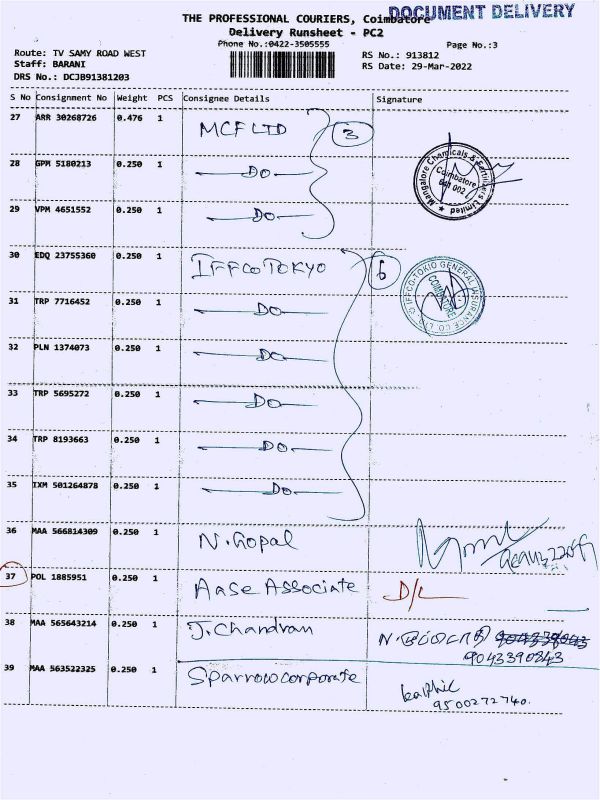 DOCUMENT DELIVERY
THE PROFESSIONAL COURIERS, Coimbatore
Delivery Runsheet - PC2
Phone No.:0422-3505555
Page No.:3
Route: TV SAMY ROAD WEST
RS No.: 913812
Staff: BARANI
RS Date: 29-Mar-2022
DRS No.: DCJB91381203
S No Consignment No Weight PCS Consignee Details Signature
27 ARR 30268726 0.476 1 MCF LTD 3
Mangalore Chemicals & Fertilizers Limited
Coimbatore
641 002
28 GPM 5180213 0.250 1 DO
29 VPM 4651552 0.250 1 DO
30 EDQ 23755360 0.250 1 IFFCO TOKYO 6
IFFCO-TOKIO GENERAL INSURANCE CO. LTD.
COIMBATORE
31 TRP 7716452 0.250 1 DO
32 PLN 1374073 0.250 1 DO
33 TRP 5695272 0.250 1 DO
34 TRP 8193663 0.250 1 DO
35 IXM 501264878 0.250 1 DO
36 MAA 566814309 0.250 1 N. Gopal
37 POL 1885951 0.250 1 Aase Associate D/L
38 MAA 565643214 0.250 1 J. Chandran
9043390243
39 MAA 563522325 0.250 1 Sparrow corporate
9500272740.